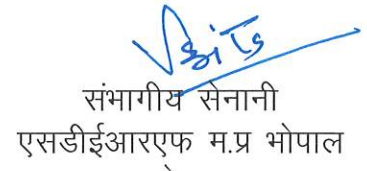 संभागीय सेनानी
एसडीईआरएफ म.प्र भोपाल